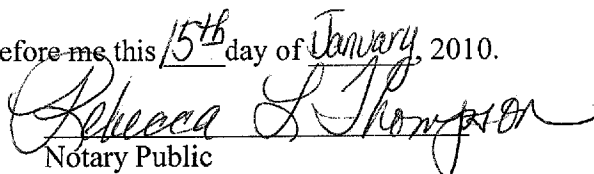 efore me this 15th day of January, 2010.
Rebecca L Thompson
Notary Public